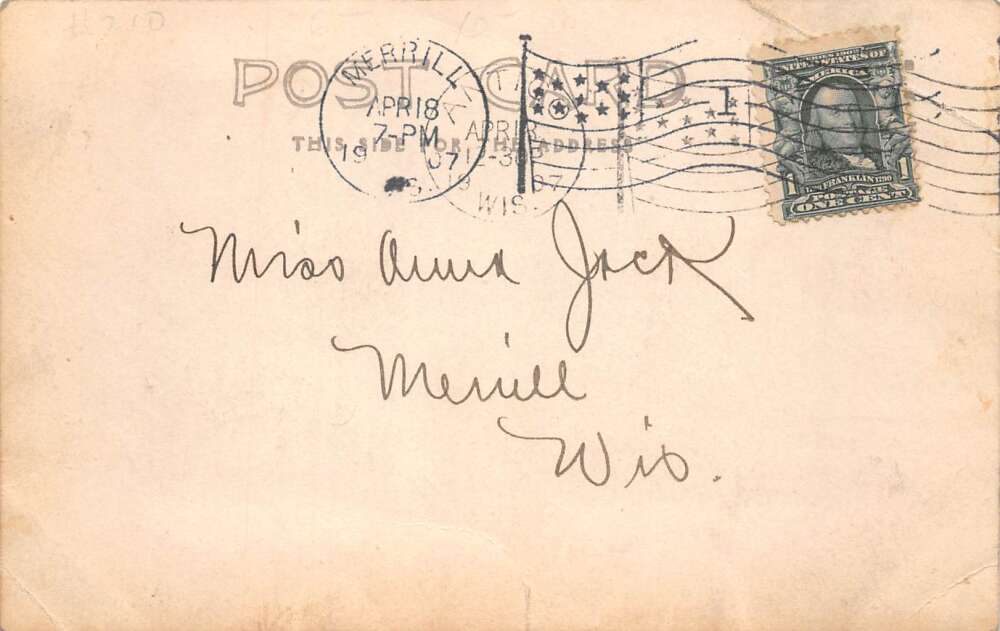 POST CARD
THIS SIDE FOR THE ADDRESS
MERRILL
APR 18
7-PM
1907
WIS.
APR 18
12-30P
1907
WIS.
1
SERIES 1902
UNITED STATES OF
AMERICA
1 1
1706 FRANKLIN 1790
POSTAGE
ONE CENT
Miss Anna Jack
Merrill
Wis.